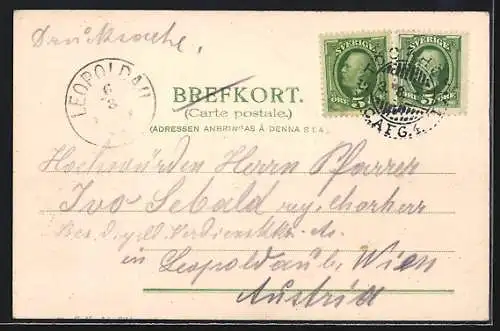 Drucksache,
SVERIGE
SVERIGE
5 ÖRE
5 ÖRE
LEOPOLDAU
6
3
BREFKORT.
(Carte postale.)
(ADRESSEN ANBRINGAS Å DENNA SIDA)
Hochwürden Herrn Pfarrer
Ivo Sebald reg. Chorherr
Bes. d. gold. Verdienstkr. etc.
in Leopoldau b. Wien
Austria